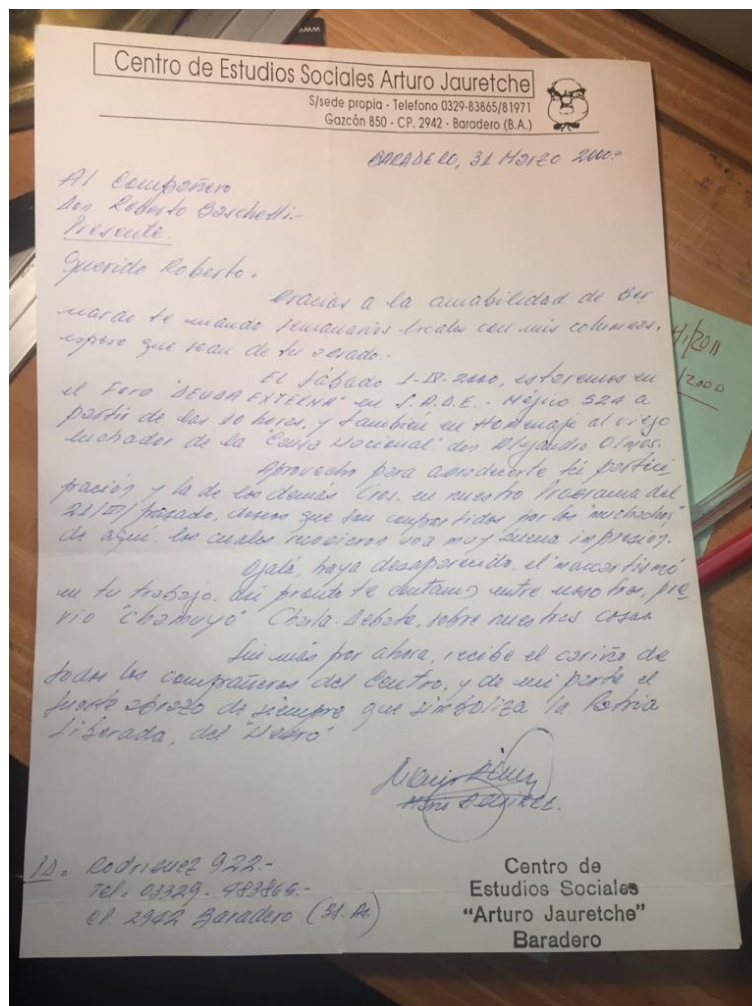 Centro de Estudios Sociales Arturo Jauretche
S/sede propia - Telefono 0329-83865/81971
Gazcón 850 - CP. 2942 - Baradero (B.A.)
BARADERO, 31 Marzo 2000.-
Al Compañero
Don Roberto Baschetti.-
Presente.
Querido Roberto.
Gracias a la amabilidad de Ber
nardo te mando semanarios locales con mis columnas,
espero que sean de tu agrado.-
El Sábado 1-IV-2000, estaremos en
el Foro "DEUDA EXTERNA" en S.A.D.E. - Méjico 524 a
partir de las 10 horas, y también en Homenaje al viejo
luchador de la "Causa Nacional" don Alejandro Olmos.
Aprovecho para agradecerte tú partici
pación y la de los demás Cros. en nuestro Programa del
21/III/pasado, deseos que son compartidos por los "muchachos"
de aquí. los cuales recogieron una muy buena impresión.
Ojalá, haya desaparecido, el macartismo
en tu trabajo. Así pronto te contamos entre nosotros, pre
vio "Chamuyo" Charla Debate, sobre nuestras cosas.
Sin más por ahora, recibe el cariño de
todos los compañeros del Centro, y de mi parte el
fuerte abrazo de siempre que simboliza la Patria
Liberada, del
Rodriguez 922.-
Tel. 03329-483865.-
CP. 2942 Baradero (Bs. As.)
Centro de
Estudios Sociales
"Arturo Jauretche"
Baradero